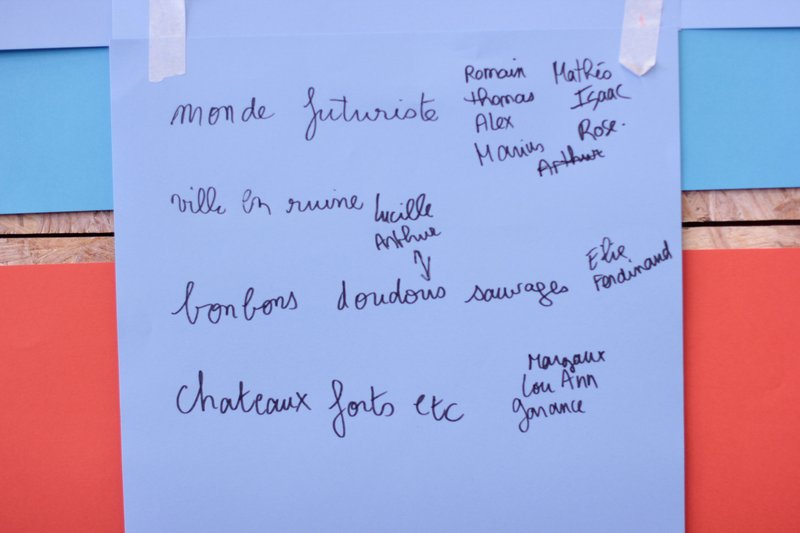 monde futuriste
Romain Mathéo
thomas Isaac
Alex Rose.
Marius Arthur
ville en ruine
Lucille
Arthur
bonbons doudous sauvages
Elie
Ferdinand
chateaux forts etc
Margaux
Lou Ann
garance